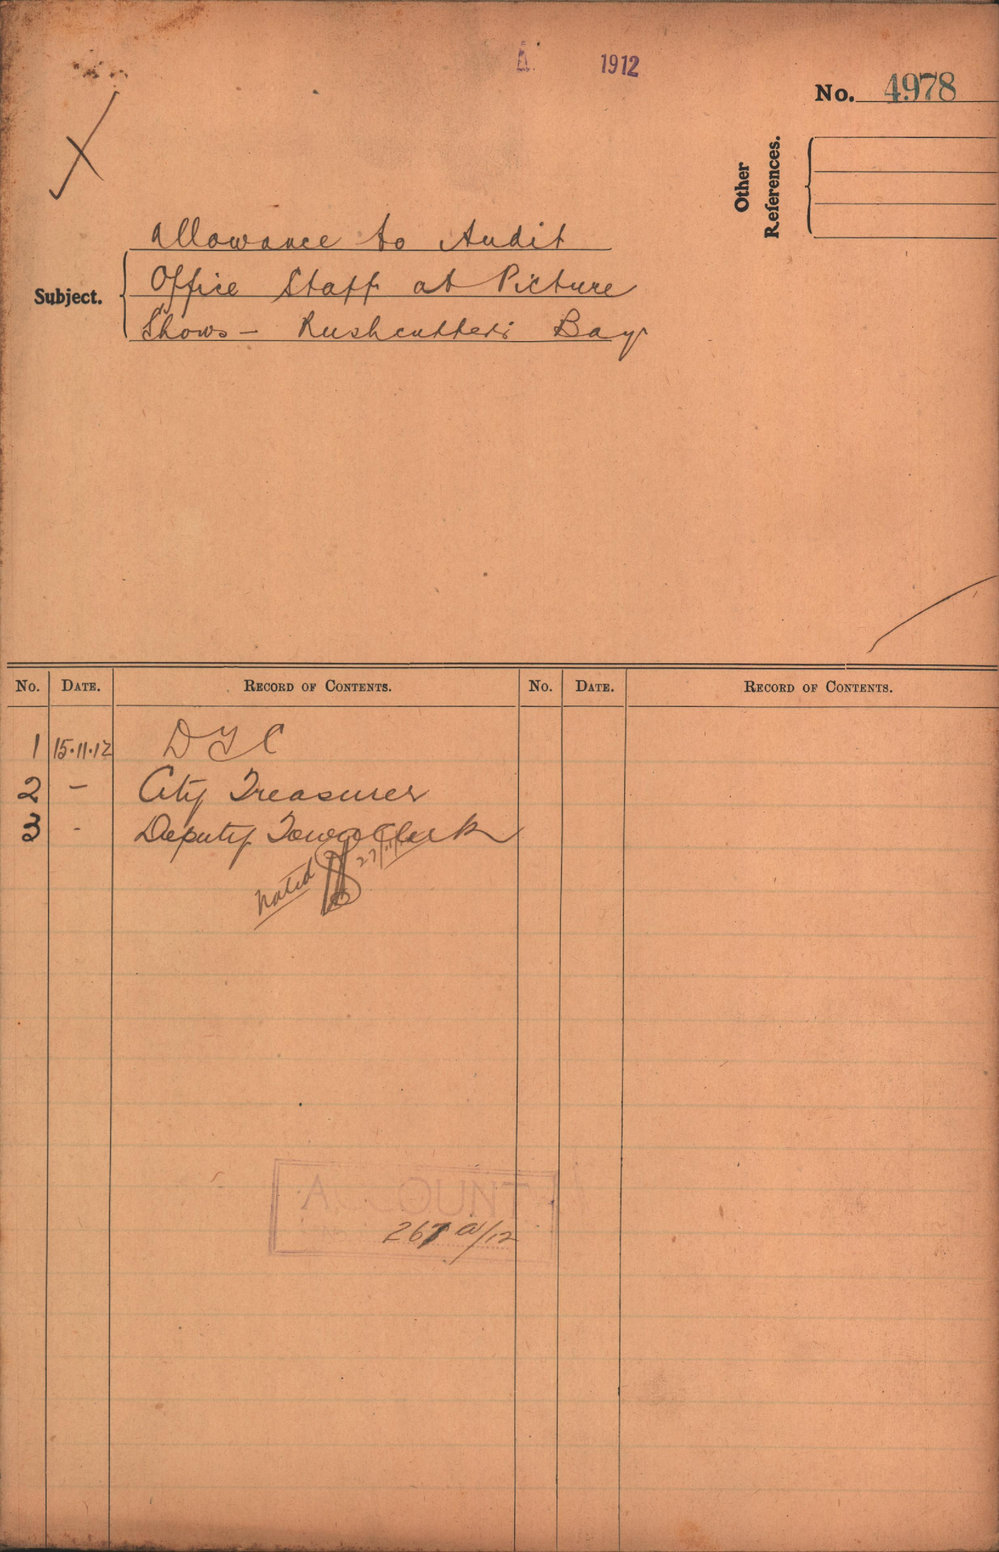 1912
No. 4978
Other References.
Subject.
Allowance to Audit
Office Staff at Picture
Shows - Rushcutters Bay
No. DATE. RECORD OF CONTENTS. No. DATE. RECORD OF CONTENTS.
1 15.11.12 D T C
2 - City Treasurer
3 - Deputy Town Clerk
Noted 27/11/
ACCOUNT
/12